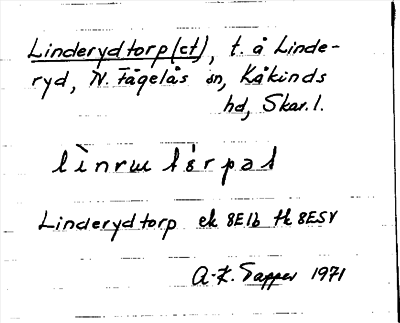 Linderydtorp(et), t. å Linde-
ryd, N. Fågelås sn, Kåkinds
hd, Skar.l.
Linderydtorp ek 8E1b tk 8ESV
A-K. Tapper 1971